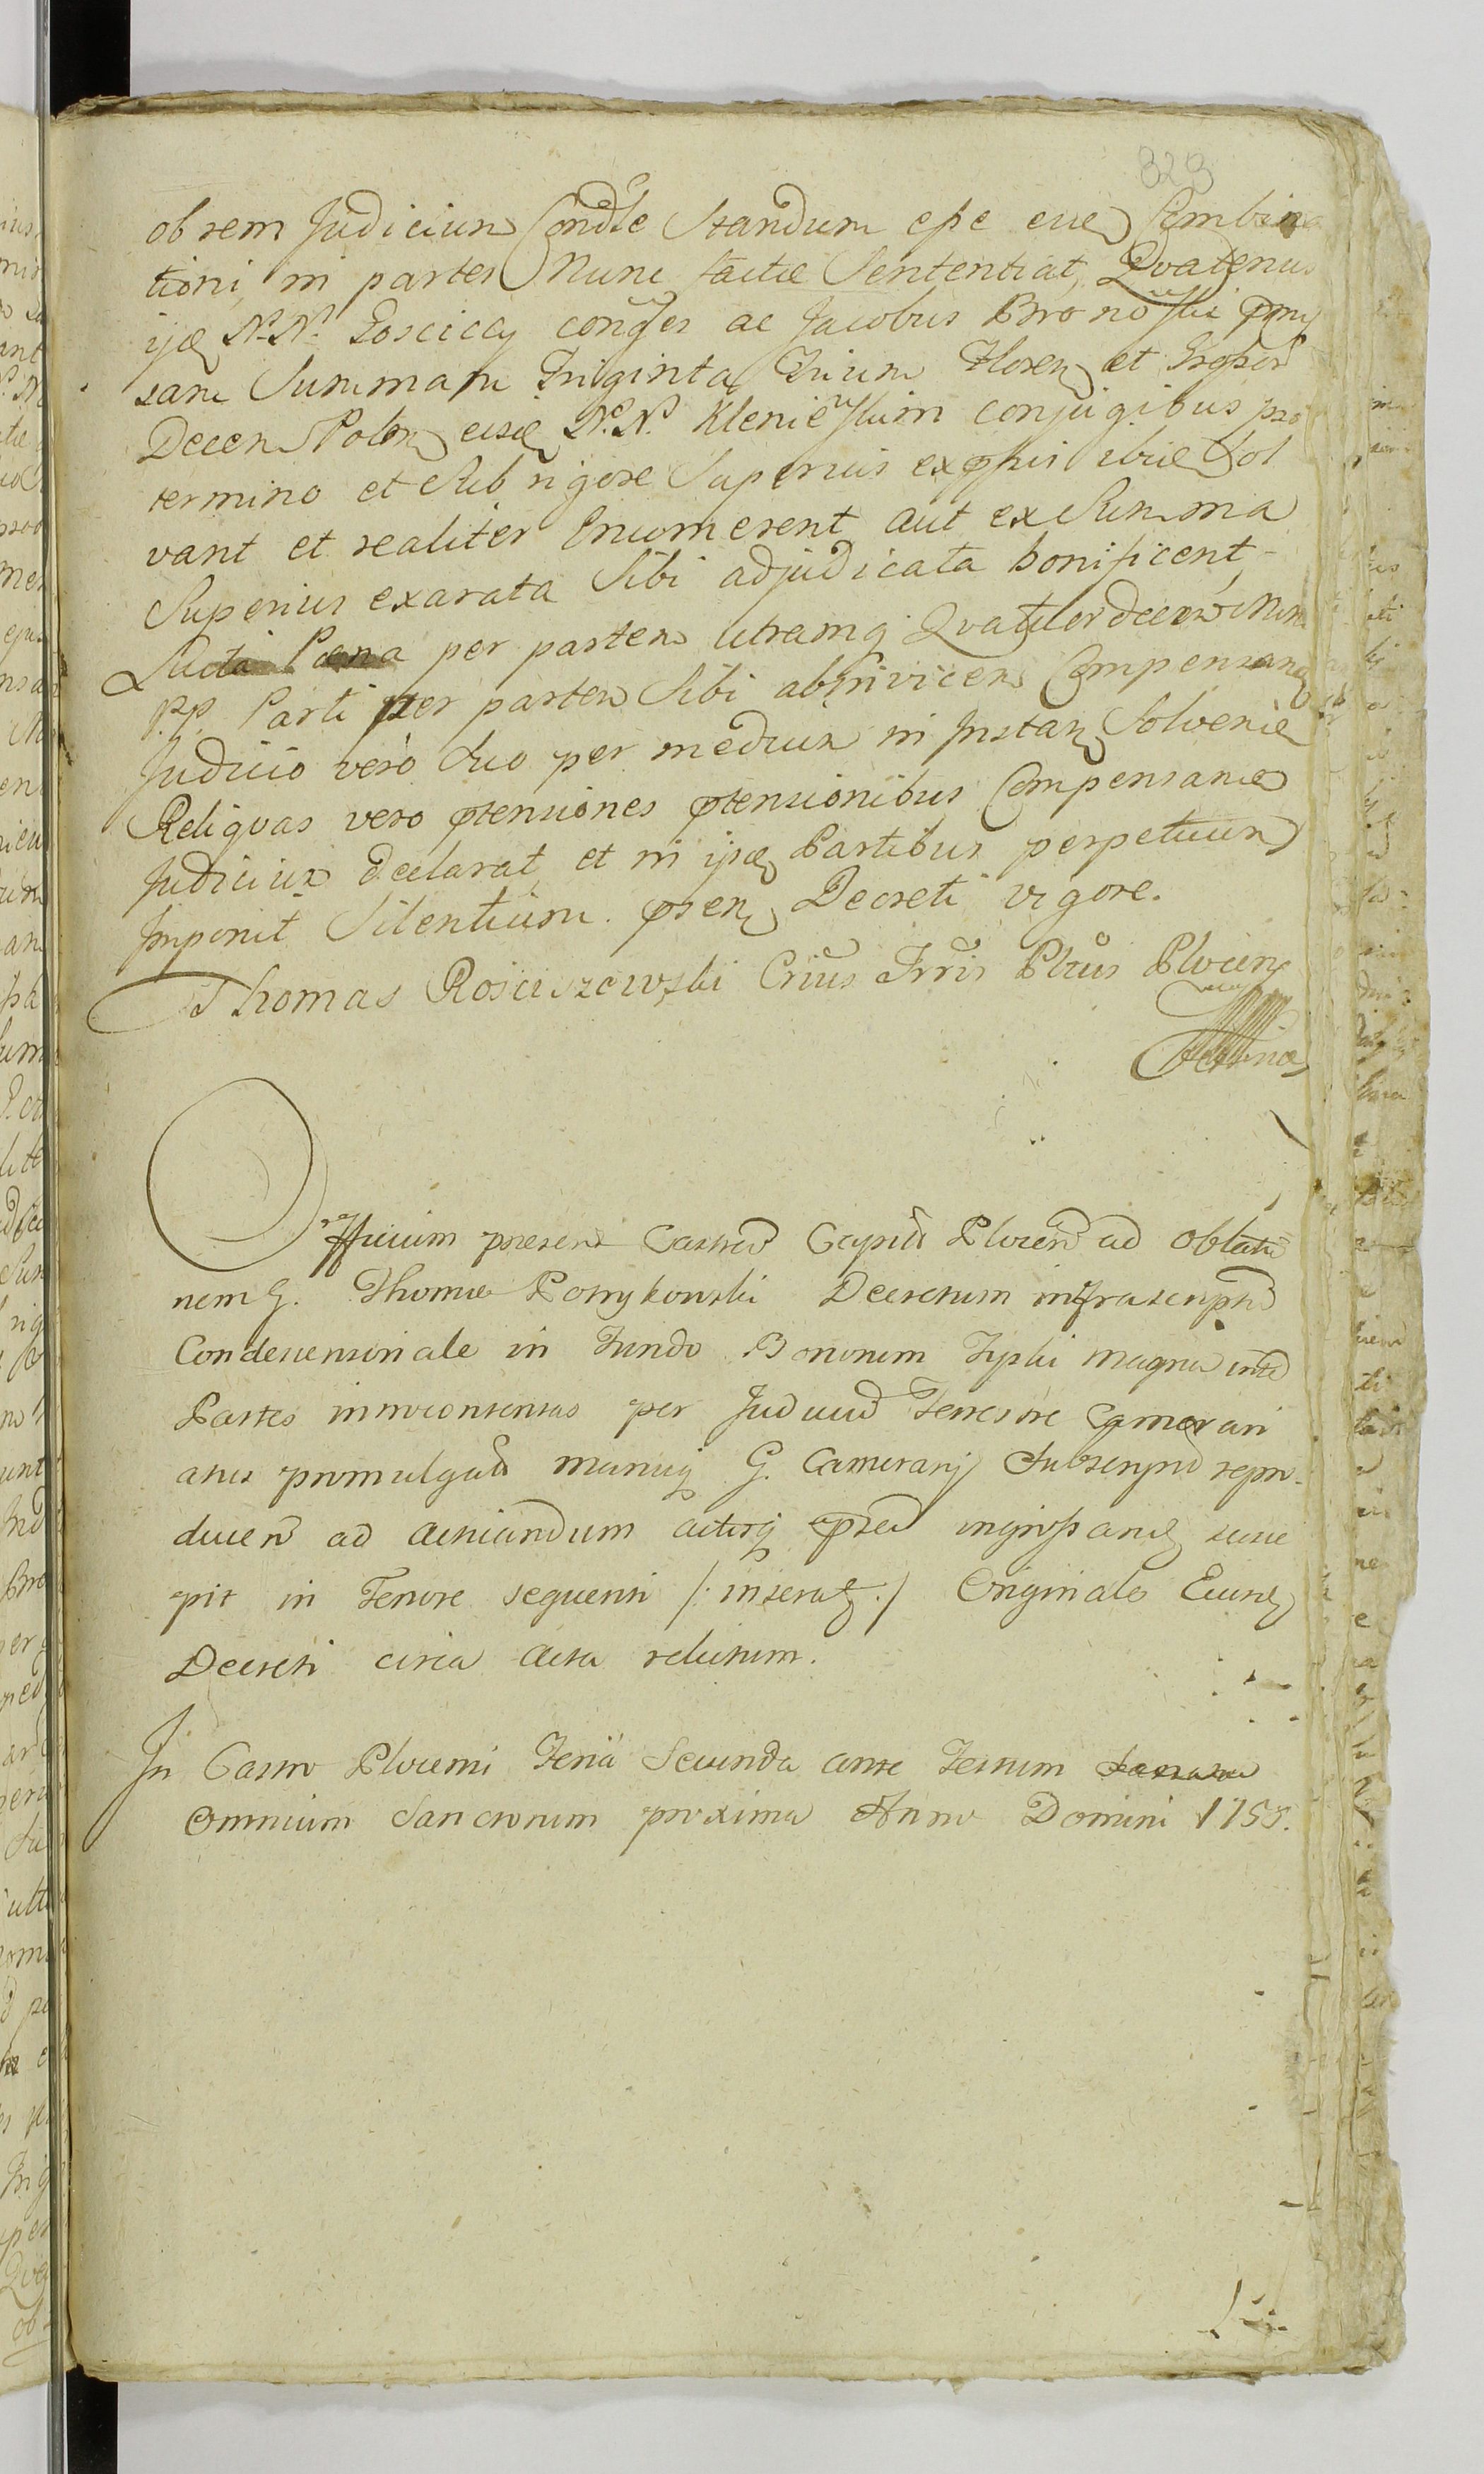 323
ob rem Judicium Condle Standum esse eidem Combina
tioni in partes Nunc factae Sententiat, Qvatenus
ijdem N.N. Łosciccy conges ac Jacobus Bronowski
sam Summam Triginta Trium Floren et Grossor
Decem Polon eisdem N.N. Kleniewskim conjugibus pro
termino et Sub rigore Superius expssis ibidem Sol
vant et realiter Enumerent aut ex Summa
Superius exarata Sibi adjudicata bonificent
Lucta Paena per partem utramq Qvatuordecem
PP. Parti per partem Sibi abinvicem Compensan
Judicio verò Suo per medium in Instan Solven
Reliqvas vero ptensiones ptensionibus Compensan
Judicium declarat, et in ijsdem Partibus perpetuum
Imponit Silentium. psen Decreti vigore.
Thomas Rosciszewski Crius Trris Pltus Plocen

Officium presens Castren Capit Plocen ad oblatio
nem G. Thomae Potrykowski Decretum infrascript
Condescensionale in Fundo Bonorum magna inter
Partes introcontentas per Judicium Terrestre Camerari
ans promulgat manuq G. Camerarij Subscript repro-
ducen ad acticandum actisq ingrossan susce
pit in Tenore sequenti /: inserat :/ Originale Eiusd
Decreti circa acta relictum.
In Castro Plocensi Feria Secunda ante Festum
Omnium Sanctorum proxima Anno Domini 1755.